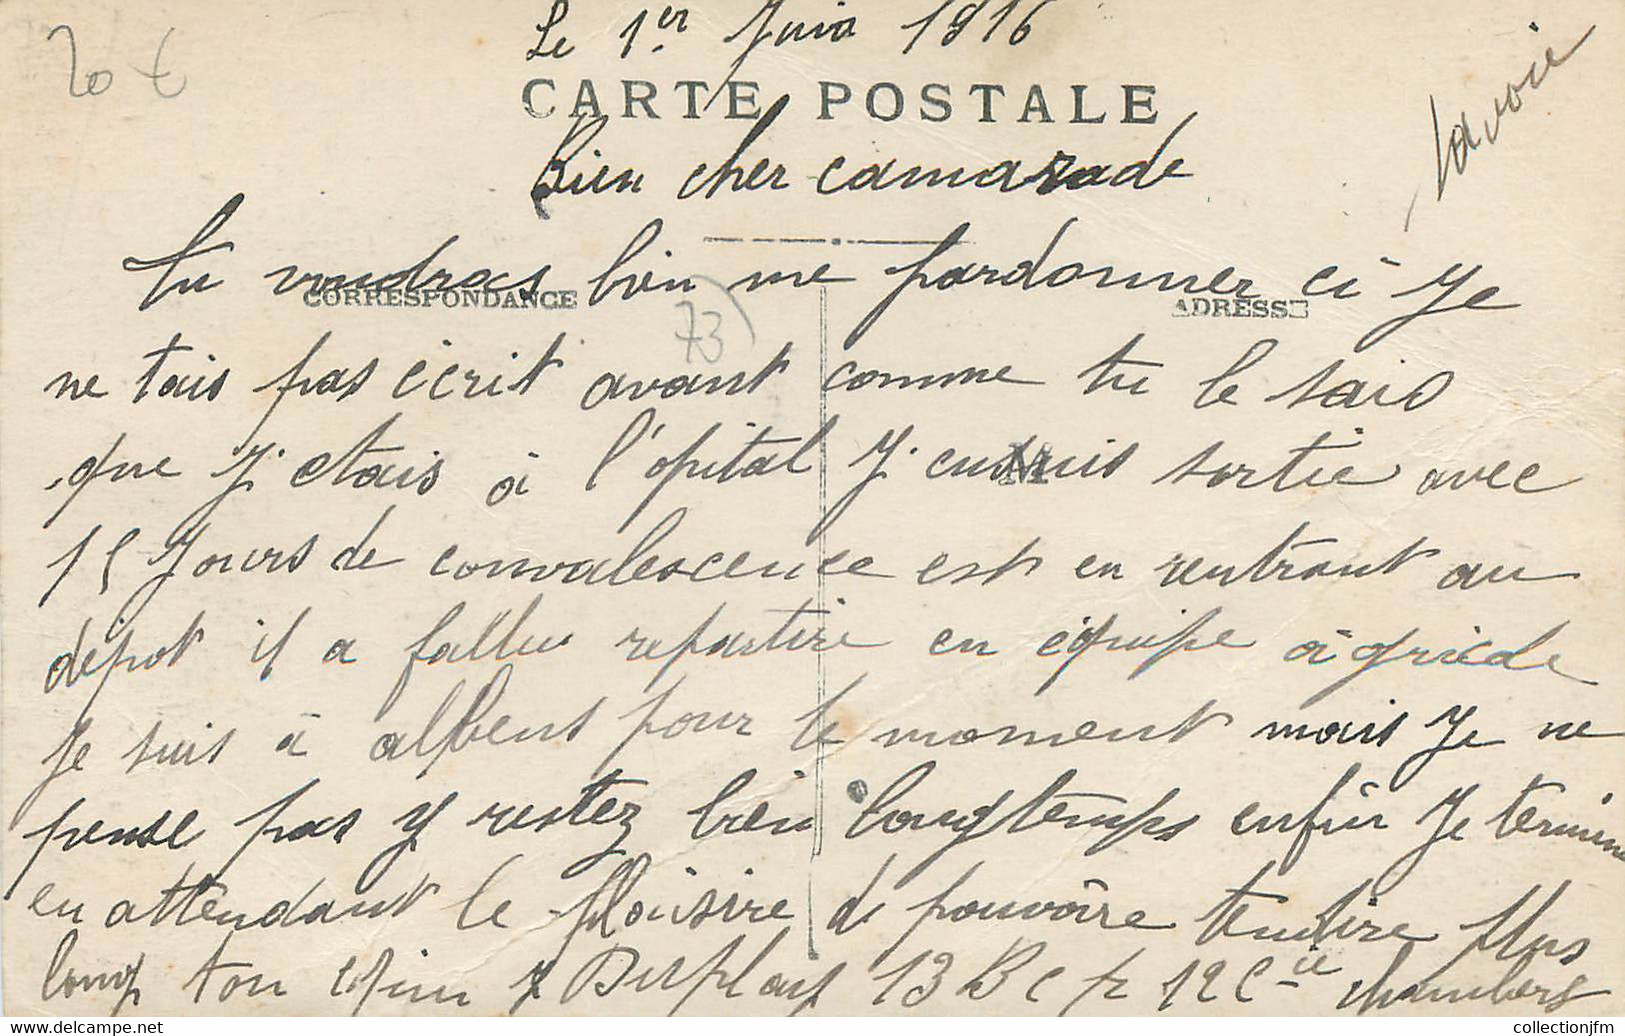 Le 1er Juin 1916
20 €
CARTE POSTALE
Savoie
Bien cher camarade
tu voudras bien me pardonner ci Je
CORRESPONDANCE
ADRESSE
73
ne tais pas écrit avant comme tu le sais
que J'etais à l'opital J'en suis sortie avec
15 Jours de convalescence est en rentrant au
dépot il a fallu repartire en équipe agricole
Je suis à albens pour le moment mais Je ne
pense pas y restez bien longtemps enfin Je termine
en attendant le plaisire de pouvoire tendire plus
long ton 13 B C A 12 Cie chambery
collectionjfm